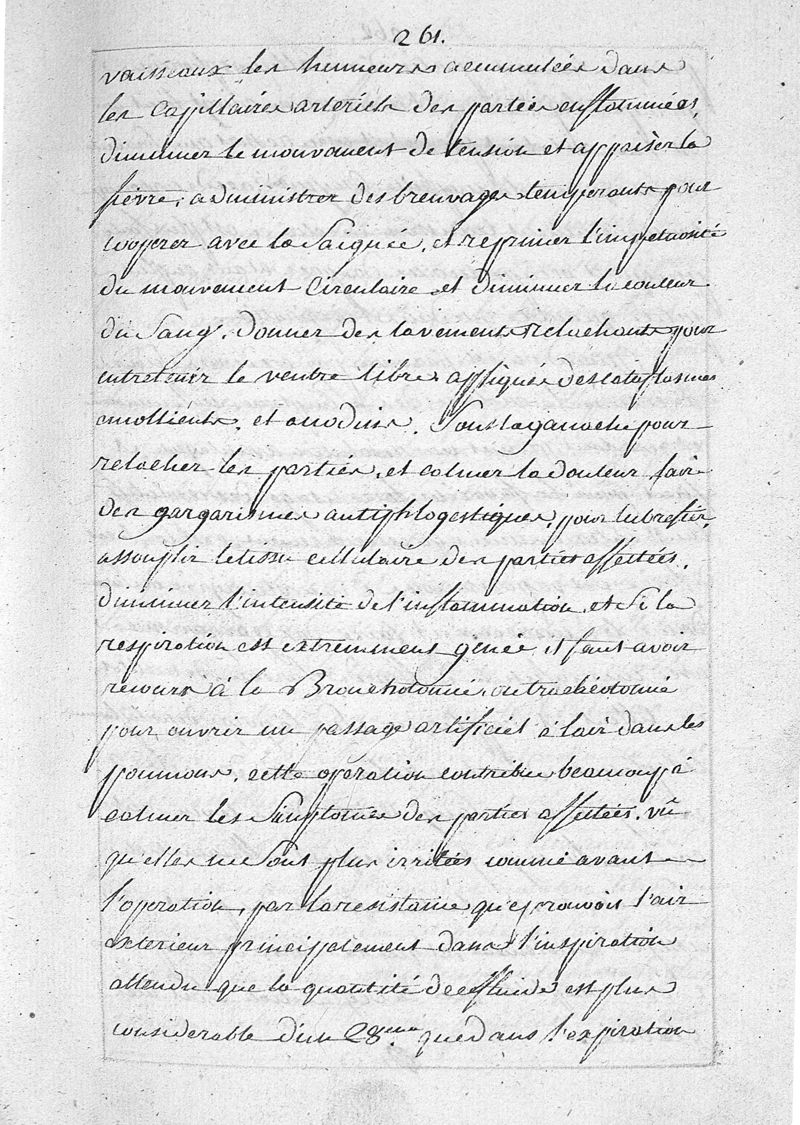 261.
vaisseaux les humeurs accumulées dans
les capillaires arteriels des parties enflammées,
diminuer le mouvement de tension et appaiser la
fievre; administrer des breuvages temperants pour
cooperer avec la Saignée, et reprimer l'impetuosité
du mouvement Circulaire et diminuer la couleur
du Sang. donner des lavements relachants pour
entretenir le ventre libre, appliquer des cataplasmes
emollients, et anodins. Sous la ganache pour
relacher les parties, et calmer la douleur faire
des gargarismes antiphlogestiques, pour lubrefier,
assouplir le tissu cellulaire des parties affectées,
diminuer l'intensité de l'inflammation, et Si la
respiration est extremment genée, il faut avoir
recours à la Bronchotomie, ou tracheotomie
pour ouvrir un passage artificiel à l'air dans les
poumons, cette operation contribue beaucoup à
calmer les Simptomes des parties affectées, vû
qu'elles ne Sont plus irritées comme avant
l'operation, par la resistance qu'eprouvoit l'air
exterieur principalement dans l'inspiration
attendu que la quantité de ce fluide est plus
considerable d'un 28.eme que dans l'expiration